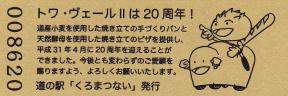 008620
トワ・ヴェールⅡは20周年！
道産小麦を使用した焼き立ての手づくりパンと
天然酵母を使用した焼き立てのピザを提供し、
平成31年4月に20周年を迎えることが
できました。今後とも変わらずのご愛顧を
賜りますよう、よろしくお願いいたします。
道の駅「くろまつない」発行